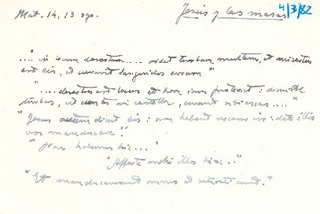 Mat. 14, 13 sgs. Jesús y las masas 4/3/82
..." in locum desertum.... vidit turbam multam, et misertus
est eis, et curavit languidos eorum "
".... desertus est locus et hora iam praeteriit: dimitte
turbas, ut euntes in castella, emant sibi escas ...."
" Jesus autem dixit eis: non habent necesse ire: date illis
vos manducare "
" Non habemus hic... "
" Afferte mihi illos huc. "
" Et manducaverunt omnes et saturati sunt. "